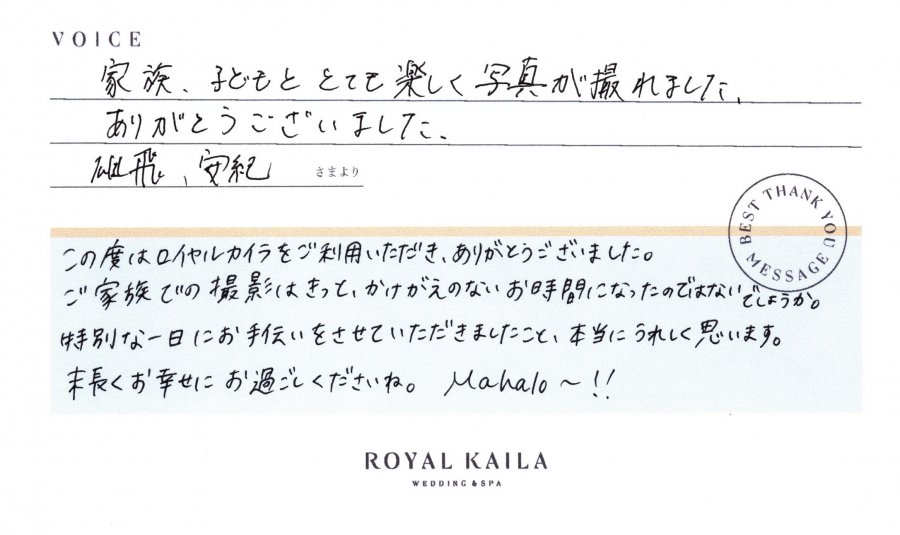 VOICE
家族、子どもと とても楽しく写真が撮れました、
ありがとうございました、
雄飛、安紀 さまより
BEST THANK YOU MESSAGE
この度はロイヤルカイラをご利用いただき、ありがとうございました。
ご家族での撮影はきっと、かけがえのないお時間になったのではないでしょうか。
特別な一日にお手伝いをさせていただきましたこと、本当にうれしく思います。
末長くお幸せにお過ごしくださいね。 Mahalo〜!!
ROYAL KAILA
WEDDING & SPA